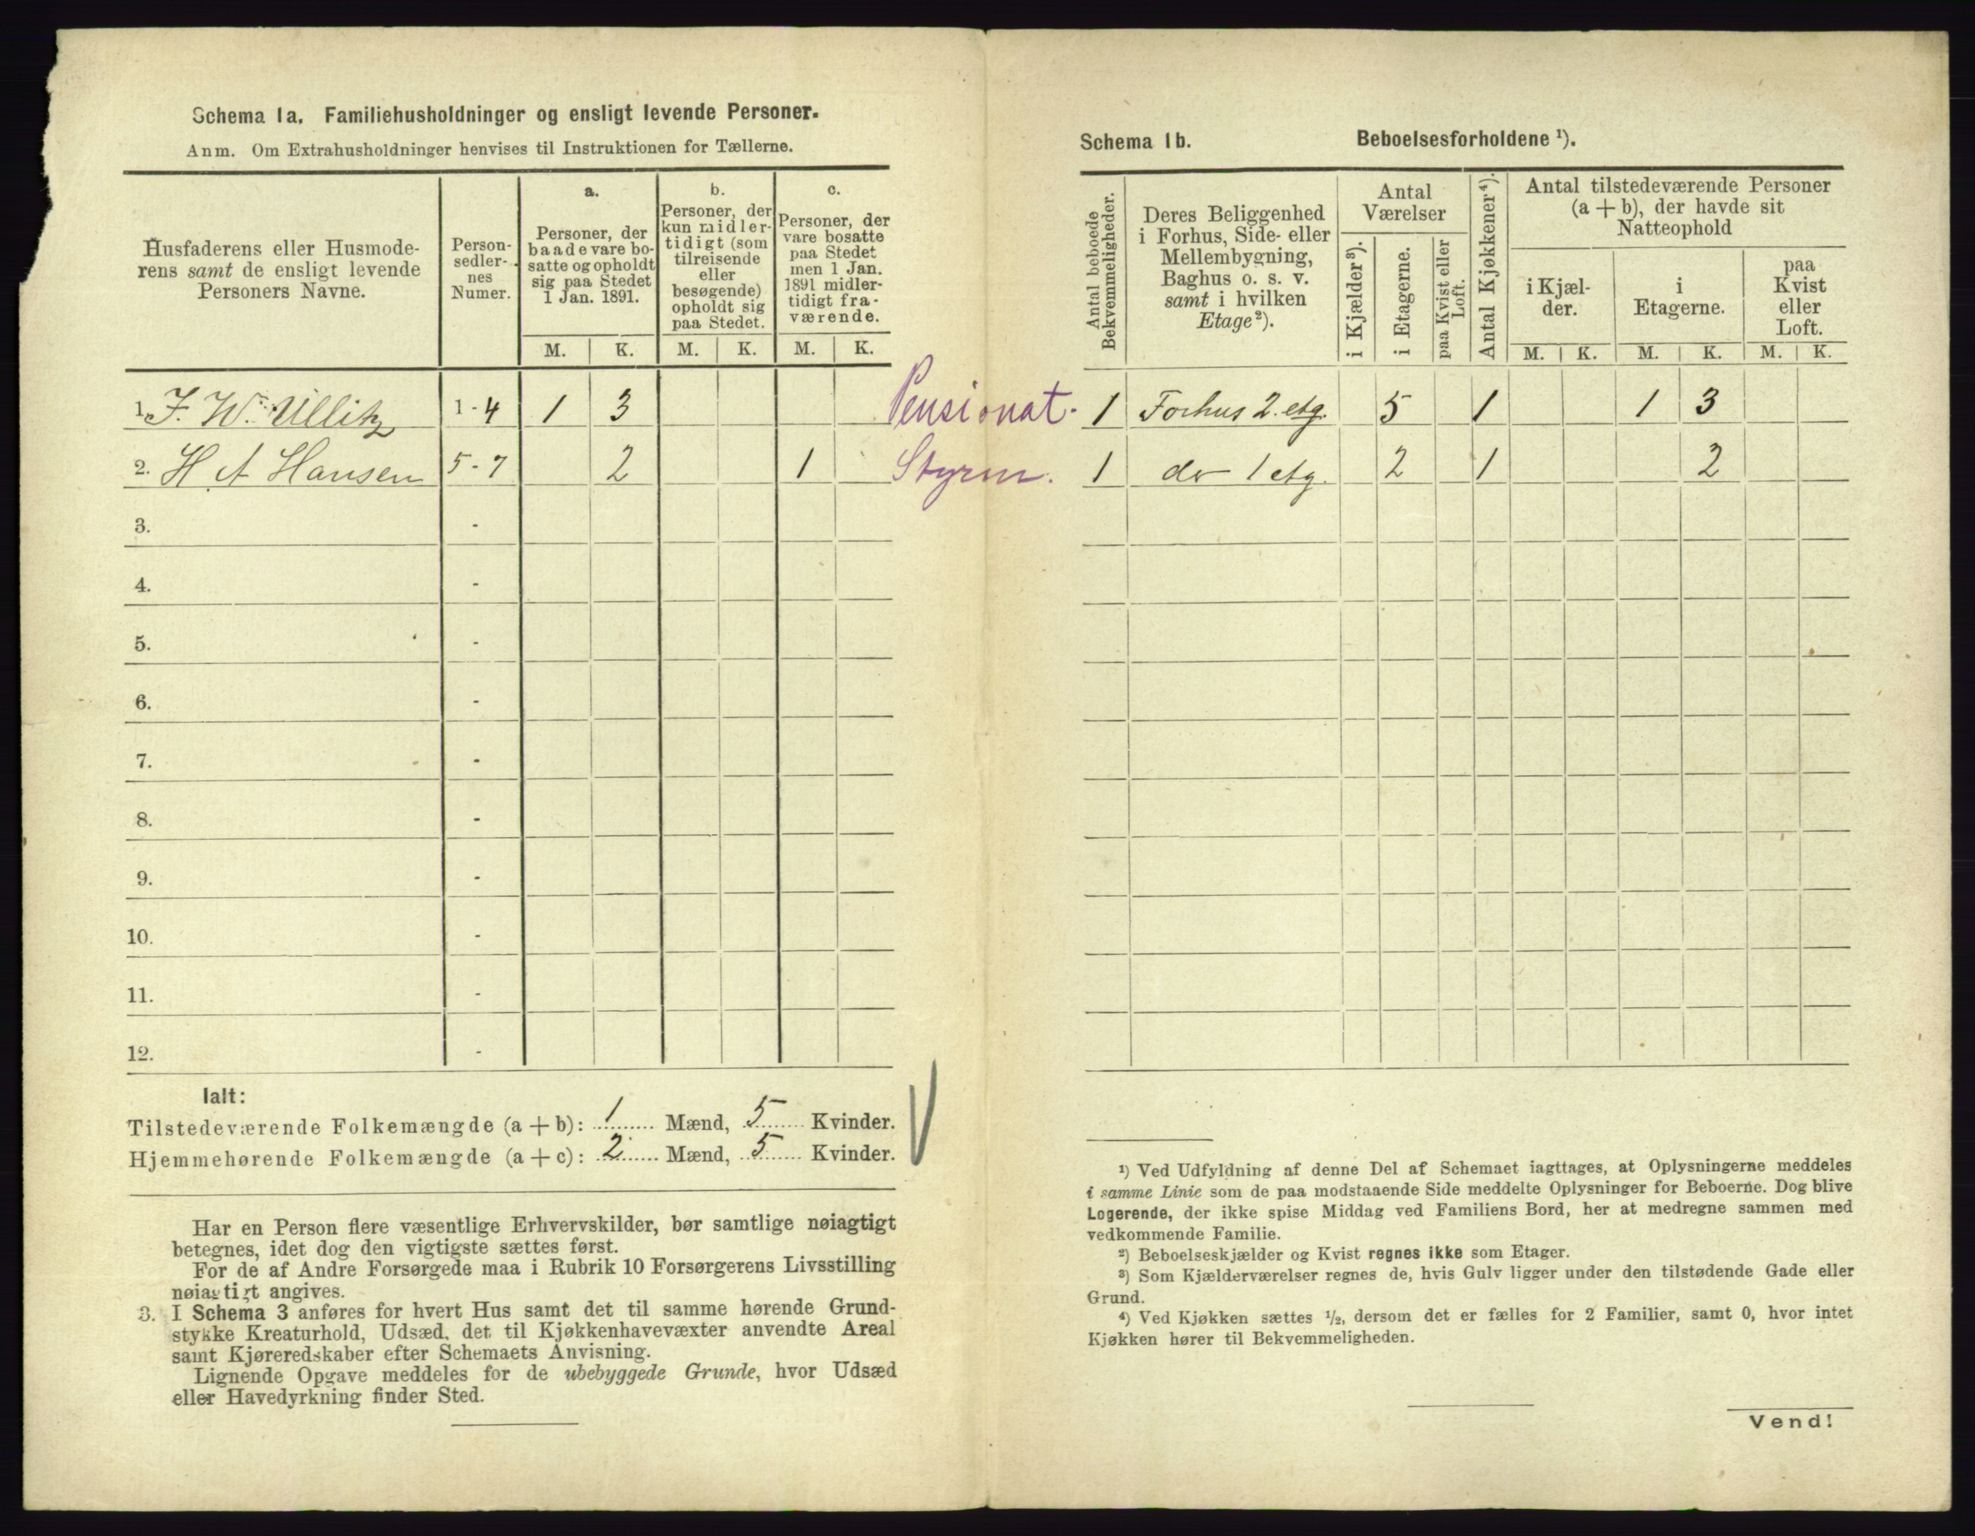 Schema 1a. Familiehusholdninger og ensligt levende Personer.
Anm. Om Extrahusholdninger henvises til Instruktionen for Tællerne.
Husfaderens eller Husmode-
rens samt de ensligt levende
Personers Navne.
Person-
sedler-
nes
Numer.
a.
Personer, der
baade vare bo-
satte og opholdt
sig paa Stedet
1 Jan. 1891.
b.
Personer, der
kun midler-
tidigt (som
tilreisende
eller
besøgende)
opholdt sig
paa Stedet.
c.
Personer, der
vare bosatte
paa Stedet
men 1 Jan.
1891 midler-
tidigt fra-
værende.
M. K. M. K. M. K.
1. J. W. Ullitz 1-4 1 3 Pensionat.
2. H A Hansen 5-7 2 1 Styrm.
3. -
4. -
5. -
6. -
7. -
8. -
9. -
10. -
11. -
12. -
Ialt:
Tilstedeværende Folkemængde (a + b): 1 Mænd, 5 Kvinder.
Hjemmehørende Folkemængde (a + c): 2 Mænd, 5 Kvinder.
Har en Person flere væsentlige Erhvervskilder, bør samtlige nøiagtigt
betegnes, idet dog den vigtigste sættes først.
For de af Andre Forsørgede maa i Rubrik 10 Forsørgerens Livsstilling
nøiagtigt angives.
3. I Schema 3 anføres for hvert Hus samt det til samme hørende Grund-
stykke Kreaturhold, Udsæd, det til Kjøkkenhavevæxter anvendte Areal
samt Kjøreredskaber efter Schemaets Anvisning.
Lignende Opgave meddeles for de ubebyggede Grunde, hvor Udsæd
eller Havedyrkning finder Sted.
Schema 1b. Beboelsesforholdene ¹).
Antal beboede
Bekvemmeligheder.
Deres Beliggenhed
i Forhus, Side- eller
Mellembygning,
Baghus o. s. v.
samt i hvilken
Etage²).
Antal
Værelser
i Kjælder³).
i Etagerne.
paa Kvist eller
Loft.
Antal Kjøkkener⁴).
Antal tilstedeværende Personer
(a + b), der havde sit
Natteophold
i Kjæl-
der.
i
Etagerne.
paa
Kvist
eller
Loft.
M. K. M. K. M. K.
1 Forhus 2. etg. 5 1 1 3
1 do 1 etg. 2 1 2
¹) Ved Udfyldning af denne Del af Schemaet iagttages, at Oplysningerne meddeles
i samme Linie som de paa modstaaende Side meddelte Oplysninger for Beboerne. Dog blive
Logerende, der ikke spise Middag ved Familiens Bord, her at medregne sammen med
vedkommende Familie.
²) Beboelseskjælder og Kvist regnes ikke som Etager.
³) Som Kjælderværelser regnes de, hvis Gulv ligger under den tilstødende Gade eller
Grund.
⁴) Ved Kjøkken sættes ½, dersom det er fælles for 2 Familier, samt 0, hvor intet
Kjøkken hører til Bekvemmeligheden.
Vend!